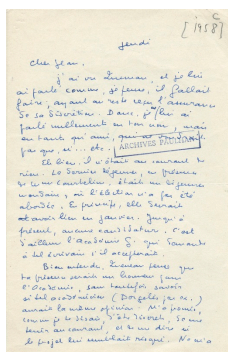 C
[1958]
jeudi
Cher Jean,
J'ai vu Queneau, et je lui
ai parlé comme, je pense, il fallait
faire, ayant au reste reçu l'assurance
de sa discrétion. Donc, je lui ai
parlé nullement en ton nom, mais
en tant qu'ami, qui
pas que, si... etc.
ARCHIVES PAULHAN
Eh bien. Il n'était au courant de
rien. Le dernier déjeuner, en présence
de était un déjeuner
mondain, où l'élection n'a pas été
abordée. En principe, elle devrait
avoir lieu en janvier. Jusqu'à
présent, aucune candidature. C'est
d'ailleurs l'Académie G. qui demande
à tel écrivain s'il accepterait.
Bien entendu Queneau pense que
ta présence serait un honneur pour
l'Académie, sans toutefois savoir
si tel académicien (Dorgelès, par ex.)
aurait la même opinion. M'a promis,
comme je te disais d'être discret. Se
tenir au courant, et me dire si
le projet lui semblait risqué. Ne m'a